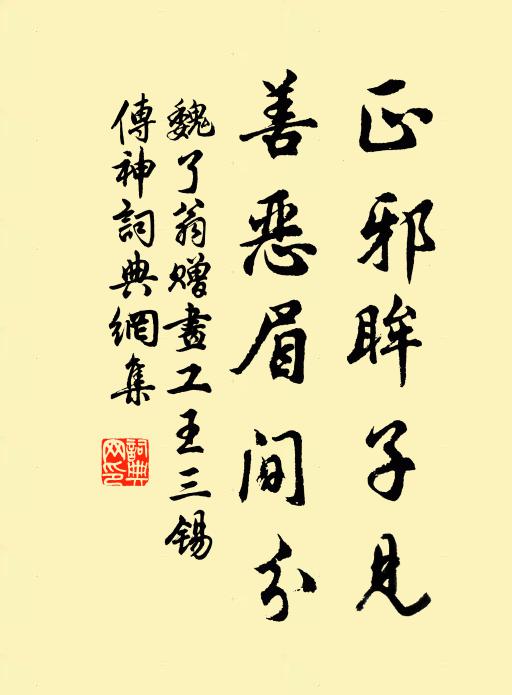 正邪眸子見
善惡眉間分
魏了翁贈畫工王三錫
傳神詞典網集
詞典
网印